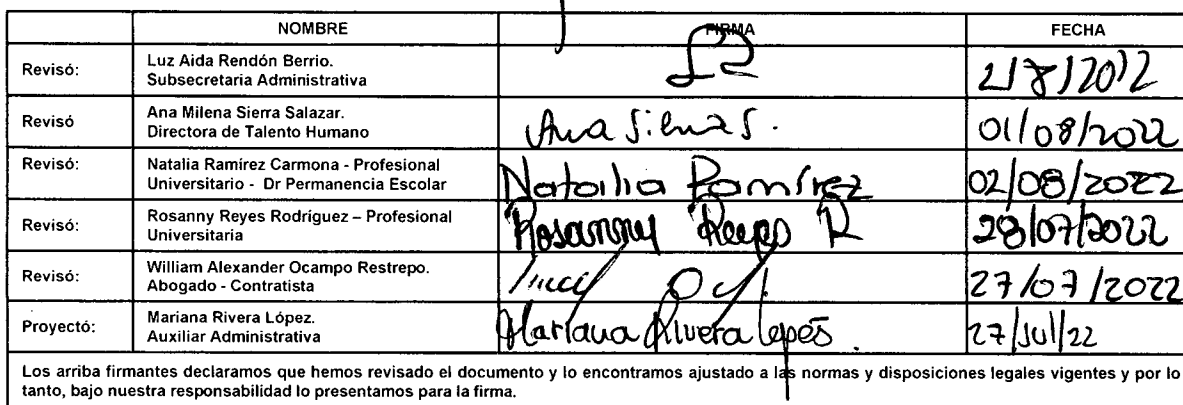 NOMBRE FIRMA FECHA
Revisó: Luz Aida Rendón Berrio.
Subsecretaria Administrativa 2/8/2022
Revisó Ana Milena Sierra Salazar.
Directora de Talento Humano Ana Sierra S. 01/08/2022
Revisó: Natalia Ramírez Carmona - Profesional
Universitario - Dr Permanencia Escolar Natalia Ramírez 02/08/2022
Revisó: Rosanny Reyes Rodríguez – Profesional
Universitaria Rosanny Reyes R 28/07/2022
Revisó: William Alexander Ocampo Restrepo.
Abogado - Contratista 27/07/2022
Proyectó: Mariana Rivera López.
Auxiliar Administrativa Mariana Rivera López. 27/Jul/22
Los arriba firmantes declaramos que hemos revisado el documento y lo encontramos ajustado a las normas y disposiciones legales vigentes y por lo
tanto, bajo nuestra responsabilidad lo presentamos para la firma.